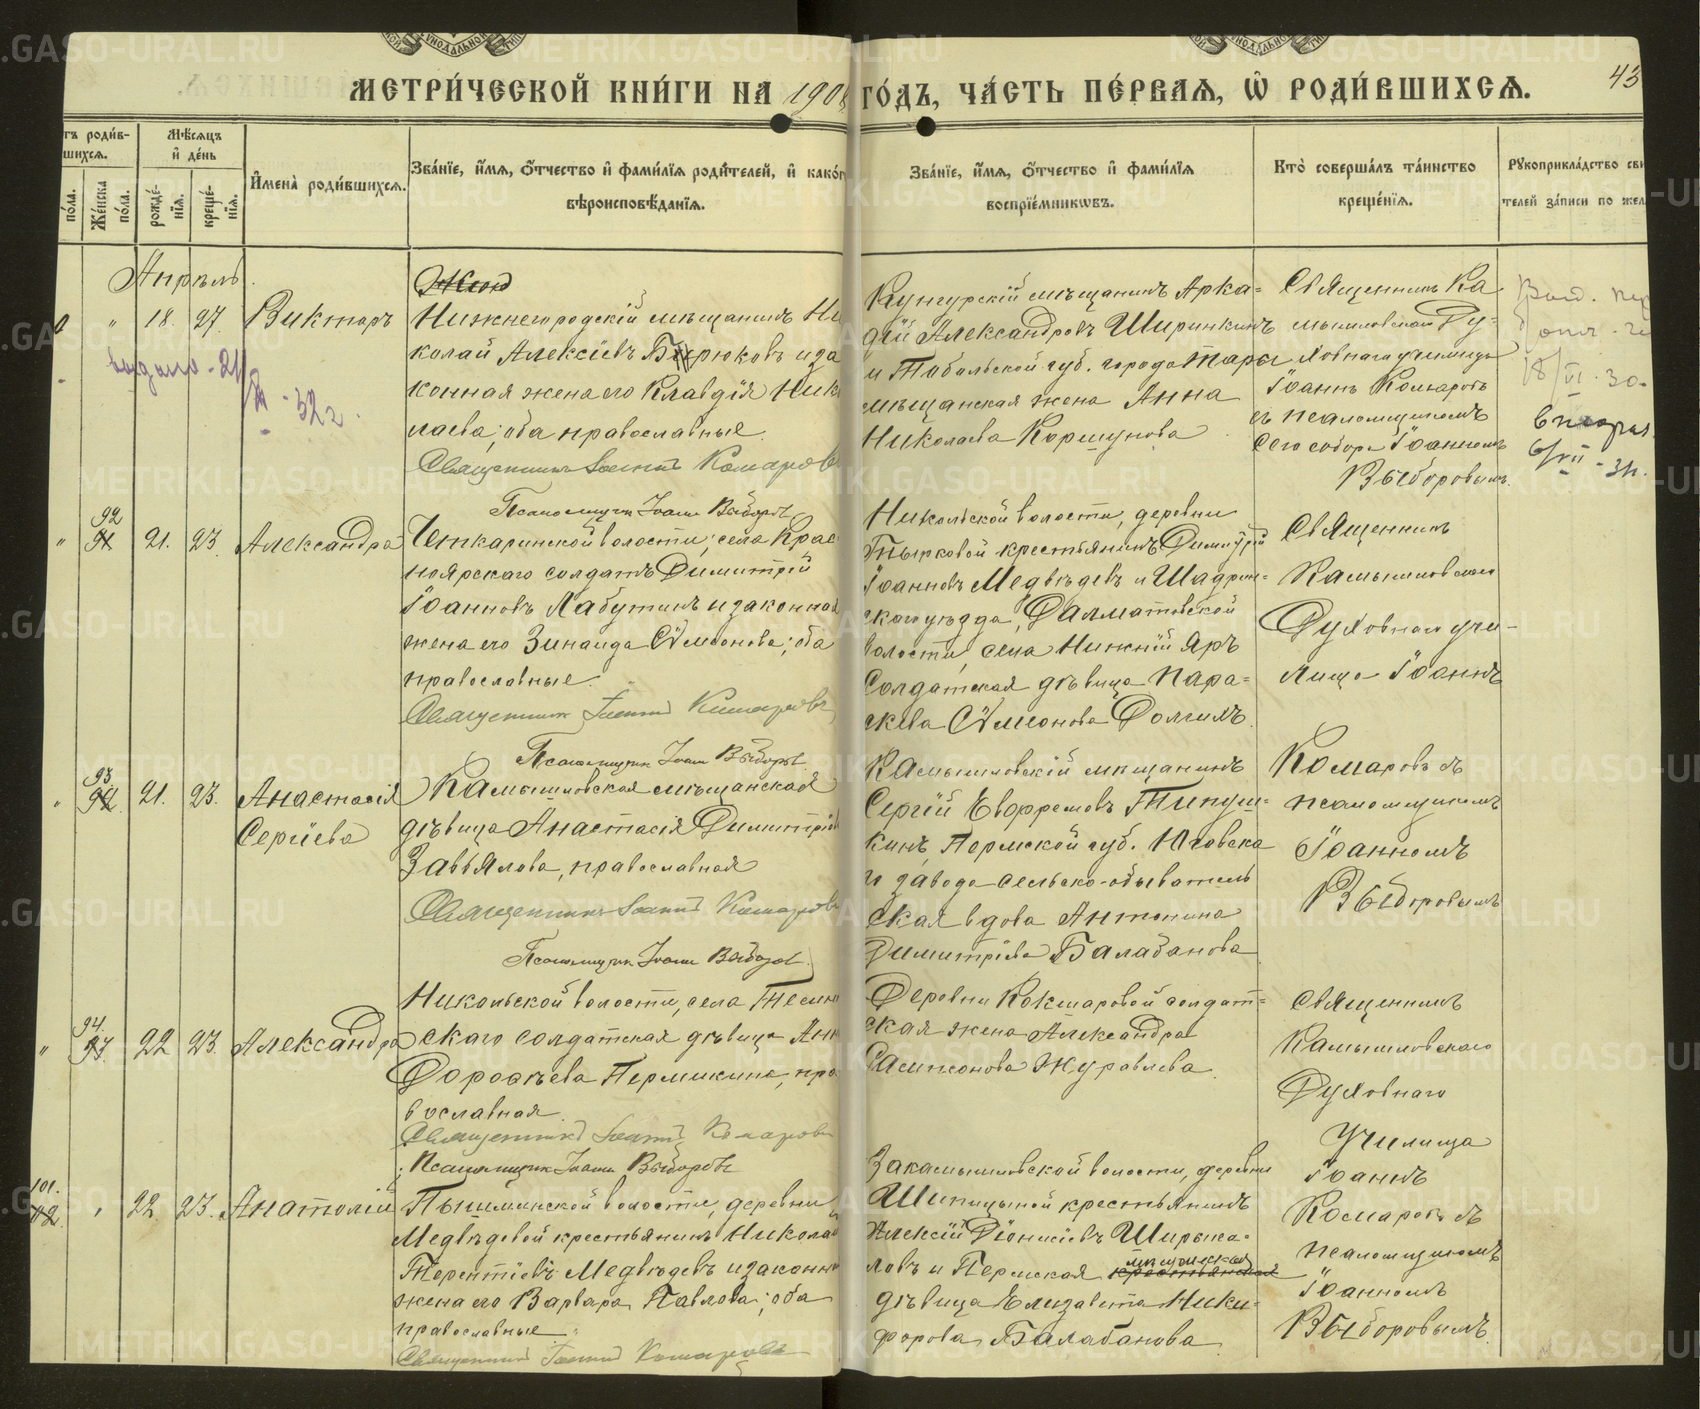 МЕТРИ́ЧЕСКОЙ КНИ́ГИ НА 190
ГО́ДЪ, ЧА́СТЬ ПЕ́РВАЯ, Ѽ РОДИ́ВШИХСЯ.
43
тъ роди́в-
шихся.
по́ла.
Же́нска
по́ла.
Мѣ́сяцъ
и҆ де́нь
рожде́-
нїя.
креще́-
нїя.
И҆мена̀ роди́вшихся.
Зва́нїе, и҆́мя, ѻ҆́тчество и҆ фами́лїя роди́телей, и҆ како́г
вѣроисповѣ́данїя.
Зва́нїе, и҆́мя, ѻ҆́тчество и҆ фами́лїя
воспрїе́мникѡвъ.
Кто̀ соверша́лъ та́инство
креще́нїя.
Рꙋкоприкла́дство сви
телей за́писи по жел
Апрѣль
„ 18. 27. Викторъ
выдано - 21/
- 32 г.
Нижнегородскій мѣщанинъ Ни
колай Алексіевъ Бирюковъ и за
конная жена его Клавдія Ник
лаева; оба православные.
Священникъ Іоаннъ Комаровъ
Псаломщик Іоанн Выборовъ
Кунгурскій мѣщанинъ Арка-
дій Александровъ Ширинкинъ
и Тобольской губ. города Тары
мѣщанская жена Анна
Николаева Коршунова
Священникъ Ка
мышловскаго Ду-
ховнаго училища
Іоаннъ Комаровъ
съ псаломщикомъ
сего собора Іоанномъ
Выборовымъ.
18/VI - 30-
6/VII - 31.
„ 92 91 21. 23. Александра
Четкаринской волости, села Крас
ноярскаго солдатъ Димитрій
Іоанновъ Лабутинъ и законная
жена его Зинаида Сѵмеонова; оба
православные.
Священник Іоаннъ Комаровъ
Псаломщик Іоанн Выборовъ
Никольской волости, деревни
Тырковой крестьянинъ Димитрій
Іоанновъ Медвѣдевъ и Шадрин-
скаго уѣзда, Далматовской
волости, села Нижній Яръ
солдатская дѣвица Пара-
скева Сѵмеонова Долгихъ.
Священникъ
Камышловскаго
Духовнаго учи-
лища Іоаннъ
„ 93 92 21. 23. Анастасія
Сергіева
Камышловская мѣщанская
дѣвица Анастасія Димитріев
Завьялова, православная
Священникъ Іоаннъ Комаровъ
Псаломщик Іоанн Выборовъ.
Камышловскій мѣщанинъ
Сергій Евфремовъ Типуш-
кинъ, Пермской губ. Юговска
го завода сельско-обыватель
ская вдова Антонина
Димитріева Балабанова
Комаровъ съ
псаломщикомъ
Іоанномъ
Выборовымъ
„ 94. 93. 22 23. Александра
Никольской волости, села Темн
скаго солдатская дѣвица Анн
Дороѳеева Пермикина, пра
вославная.
Священникъ Іоаннъ Комаровъ
Псаломщик Іоанн Выборовъ
Деревни Кокшаровой солдат-
ская жена Александра
Сампсонова Журавлева.
Священникъ
Камышловскаго
Духовнаго
Училища
Іоаннъ
Комаровъ съ
псаломщикомъ
Іоанномъ
Выборовымъ.
101. „ 22. 23. Анатолій
Пышминской волости, деревни
Медвѣдевой крестьянинъ Никола
Терентіевъ Медвѣдевъ и законн
жена его Варвара Павлова; оба
православные.
Священникъ Іоаннъ Комаровъ
Закамышловской волости, деревни
Шипицыной крестьянинъ
Алексій Діонисіевъ Ширыка-
ловъ и Пермская мѣщанская крестьянская
дѣвица Елизавета Ники-
форова Балабанова
METRIKI.GASO-URAL.RU